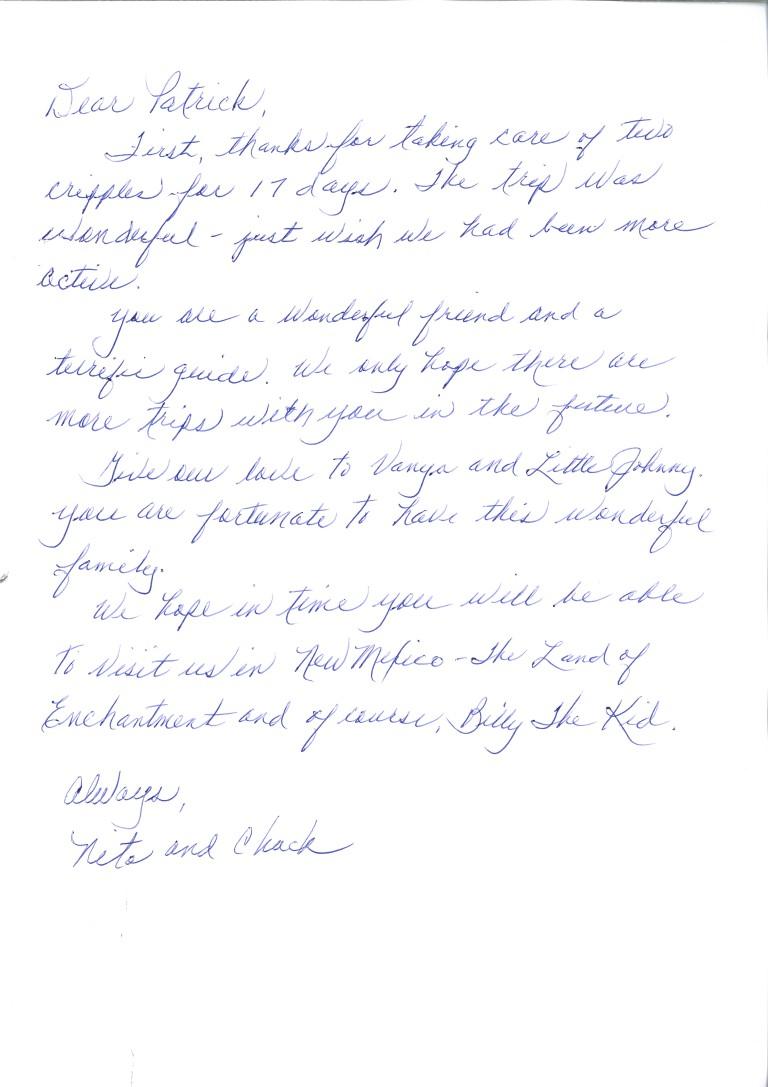 Dear Patrick,
First, thanks for taking care of two
cripples for 17 days. The trip was
wonderful - just wish we had been more
active.
You are a wonderful friend and a
terrific guide. We only hope there are
more trips with you in the future.
Give our love to Vanya and Little Johnny.
You are fortunate to have this wonderful
family.
We hope in time you will be able
to visit us in New Mexico - The Land of
Enchantment and of course, Billy The Kid.
Always,
Nita and Chuck